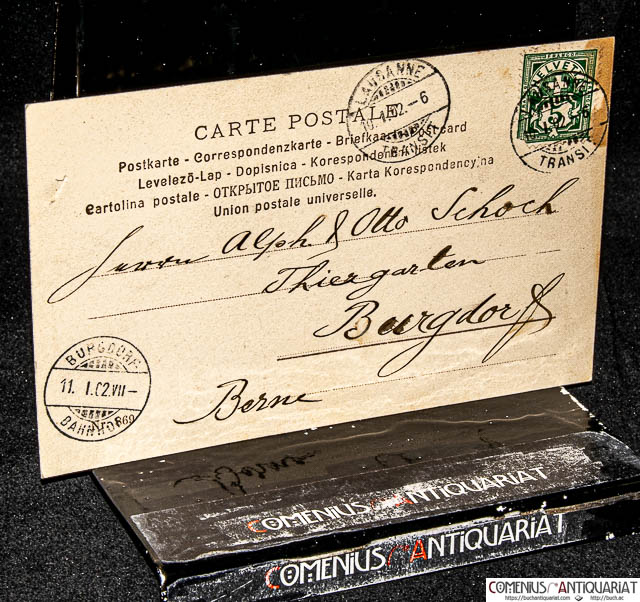 CARTE POSTALE
Postkarte - Correspondenzkarte - Briefkaart - Post card
Levelező-Lap - Dopisnica - Korespondenční lístek
Cartolina postale - ОТКРЫТОЕ ПИСЬМО - Karta Korespondencyjna
Union postale universelle.
LAUSANNE
02.-6
TRANSIT
FRANCO
HELVETIA
TRANSIT
Herrn Alph & Otto Schoch
Thiergarten
Burgdorf
Berne
BURGDORF
11. I.02.VII-
BAHNHOF
COMENIUS ANTIQUARIAT
COMENIUS ANTIQUARIAT
COMENIUS ANTIQUARIAT
https://buchantiquariat.com http://buch.ac